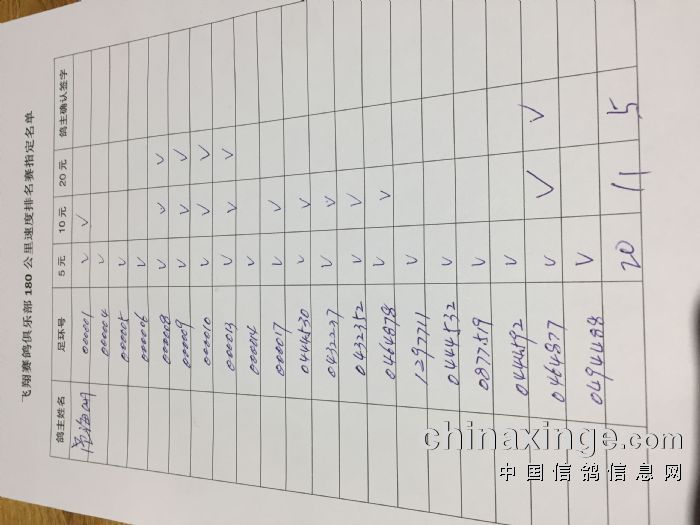 飞翔赛鸽俱乐部 180 公里速度排名赛指定名单
鸽主姓名 足环号 5 元 10 元 20 元 鸽主确认签字
000001 V V
000004 V
000005 V
000006 V
000008 V V V
000009 V V V
000010 V V V
000013 V V V
000014 V
000017 V V
0444530 V V
0432237 V V
0432352 V V
0464878 V V
1297711 V
0444532 V
0877519 V
0444592 V
0464877 V V V
0494488 V
20 11 5
chinaxinge.com
中国信鸽信息网